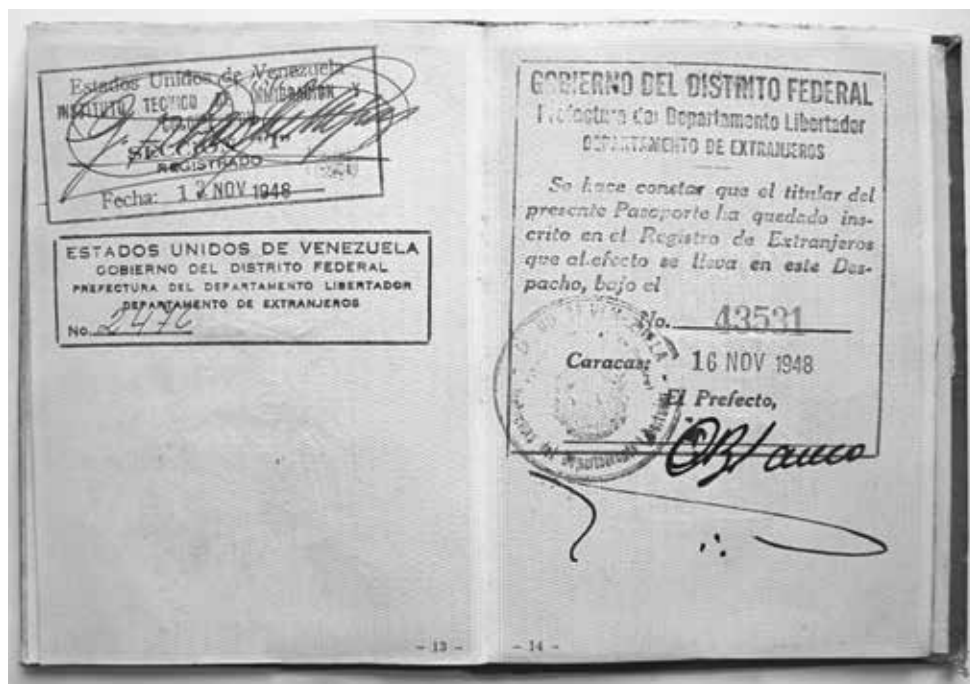 Estados Unidos de Venezuela
INSTITUTO TECNICO DE INMIGRACION Y
COLONIZACION
REGISTRADO
Fecha: 12 NOV 1948
ESTADOS UNIDOS DE VENEZUELA
GOBIERNO DEL DISTRITO FEDERAL
PREFECTURA DEL DEPARTAMENTO LIBERTADOR
DEPARTAMENTO DE EXTRANJEROS
No. 2472
- 13 -
GOBIERNO DEL DISTRITO FEDERAL
Prefectura del Departamento Libertador
DEPARTAMENTO DE EXTRANJEROS
Se hace constar que el titular del
presente Pasaporte ha quedado ins-
crito en el Registro de Extranjeros
que al efecto se lleva en este Des-
pacho, bajo el
No. 43531
Caracas: 16 NOV 1948
El Prefecto,
- 14 -